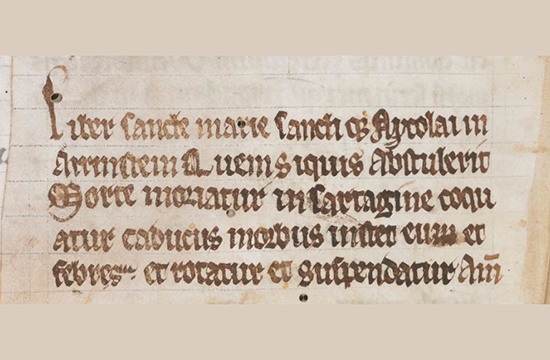 Liber sancte marie sancti qꝫ Nycolai in
Arrinstein Quem siquis abstulerit
Morte moriatur in sartagine coqu
atur caducus morbus instet eum et
febres et rotatur et suspendatur Am̄